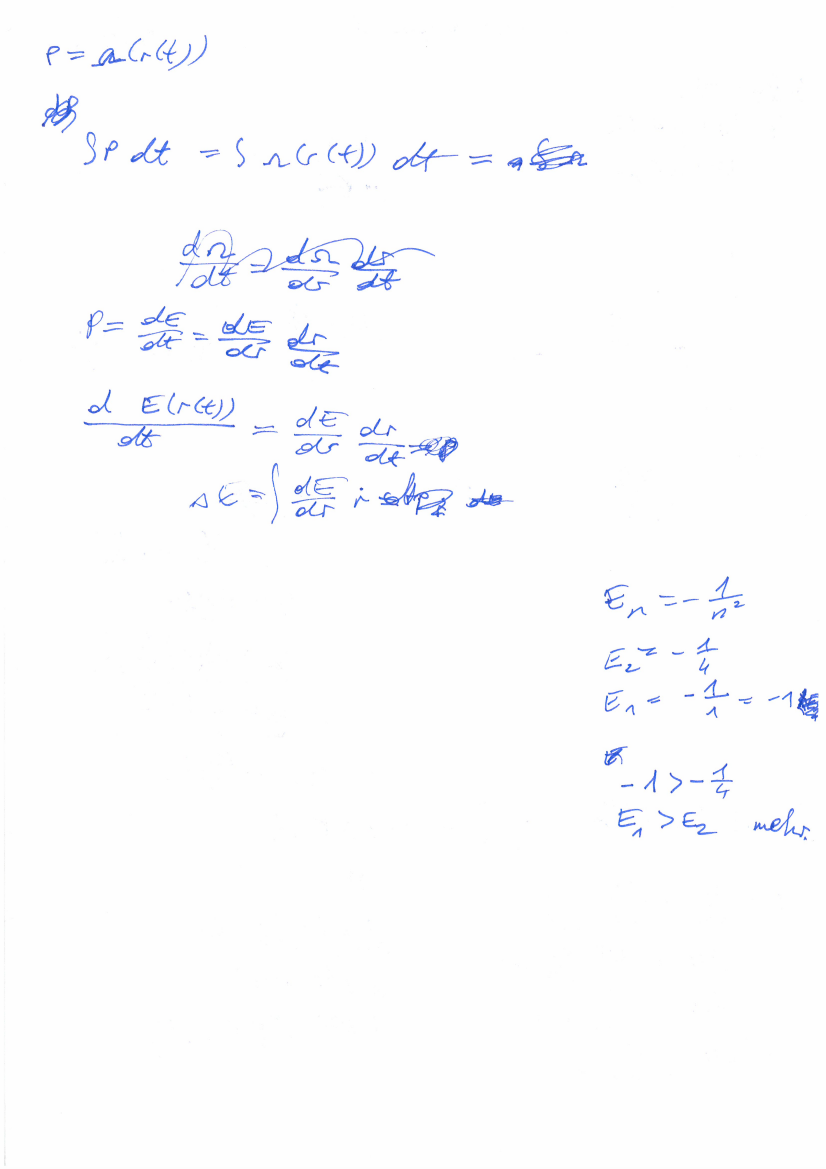 P = Ω(r(t))
∫P dt = ∫ Ω(r(t)) dt =
dΩ/dt = dΩ/dr dr/dt
P = dE/dt = dE/dr dr/dt
d E(r(t))/dt = dE/dr dr/dt
ΔE = ∫ dE/dr ṙ
E_n = - 1/n²
E_2 = - 1/4
E_1 = - 1/1 = -1
-1 > - 1/4
E_1 > E_2 mehr.